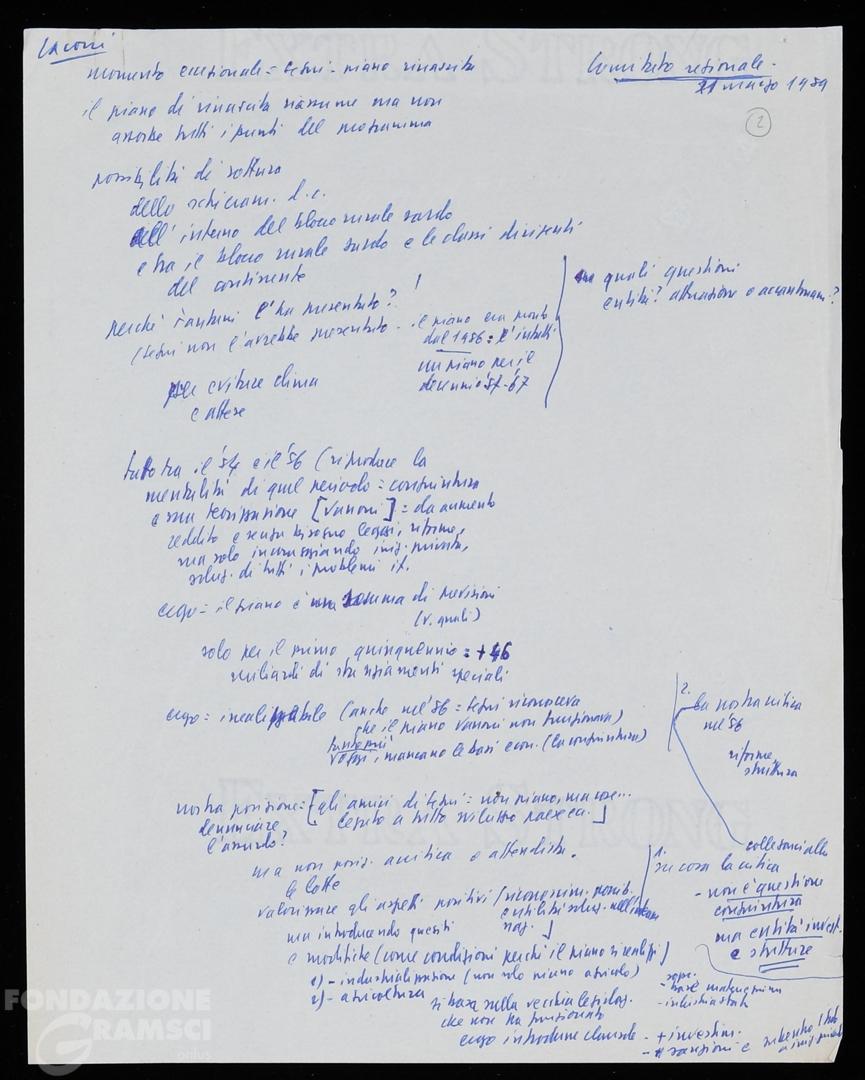 Laconi
Comitato regionale -
21 marzo 1959
2
momento eccezionale = Segni - piano rinascita
il piano di rinascita riassume ma non
assorbe tutti i punti del programma
possibilità di rottura
dello schieram. d.c.
all'interno del blocco rurale sardo
e tra il blocco rurale sardo e le classi dirigenti
del continente
perché Fanfani l'ha presentato?
(Segni non l'avrebbe presentato -
il piano era pronto
dal 1956 =
un piano per il
decennio '57-'67
quali questioni
entità? attuazione o accantonam?
per evitare clima
e attese
tutto tra il '54 e il '56 (riproduce la
mentalità di quel periodo = congiuntura
e sua teorizzazione [Vanoni] = da aumento
reddito e senza bisogno leggi, riforme,
ma solo incoraggiando iniz. privata,
soluz. di tutti i problemi it.
ergo = il piano è una somma di previsioni
(v. quali)
solo per il primo quinquennio = + 46
miliardi di stanziamenti speciali
ergo = irrealizzabile (anche nel '56 = Segni riconosceva
che il piano Vanoni non funzionava)
oggi, mancano le basi econ. (la congiuntura)
2.
la nostra critica
nel '56
riforme
struttura
nostra posizione = [gli amici di Segni = non piano, ma cose...
denunciare
l'assurdo?
legato a tutto sviluppo paese ecc.]
ma non posiz. acritica o attendista.
le lotte
valorizzare gli aspetti positivi
ma introducendo quesiti
e modifiche (come condizioni perché il piano si realizzi)
1) - industrializzazione (non solo piano agricolo)
2) - agricoltura
si basa sulla vecchia legislaz.
che non ha funzionato
ergo introdurre clausole - + investim.
- sanzioni e
1.
su cosa la critica
- non è questione
congiuntura
ma entità invest.
e strutture
FONDAZIONE
GRAMSCI
onlus